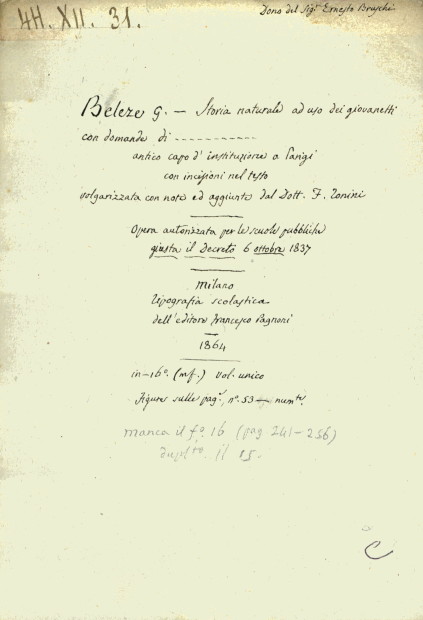 4H. XII. 31.
Dono del Sigr Ernesto Bruschi
Beleze G. — Storia naturale ad uso dei giovanetti
con domande di ----------
antico capo d'instituzione a Parigi
con incisioni nel testo
volgarizzata con note ed aggiunte dal Dott. F. Tonini
Opera autorizzata per le scuole pubbliche
giusta il decreto 6 ottobre 1837
Milano
Tipografia scolastica
dell'editore Francesco Pagnoni
1864
in-16o. (mf.) vol. unico
Figure sulle pag. no. 53 — numte.
manca il fo. 16 (pag 241-256)
il 15.
C